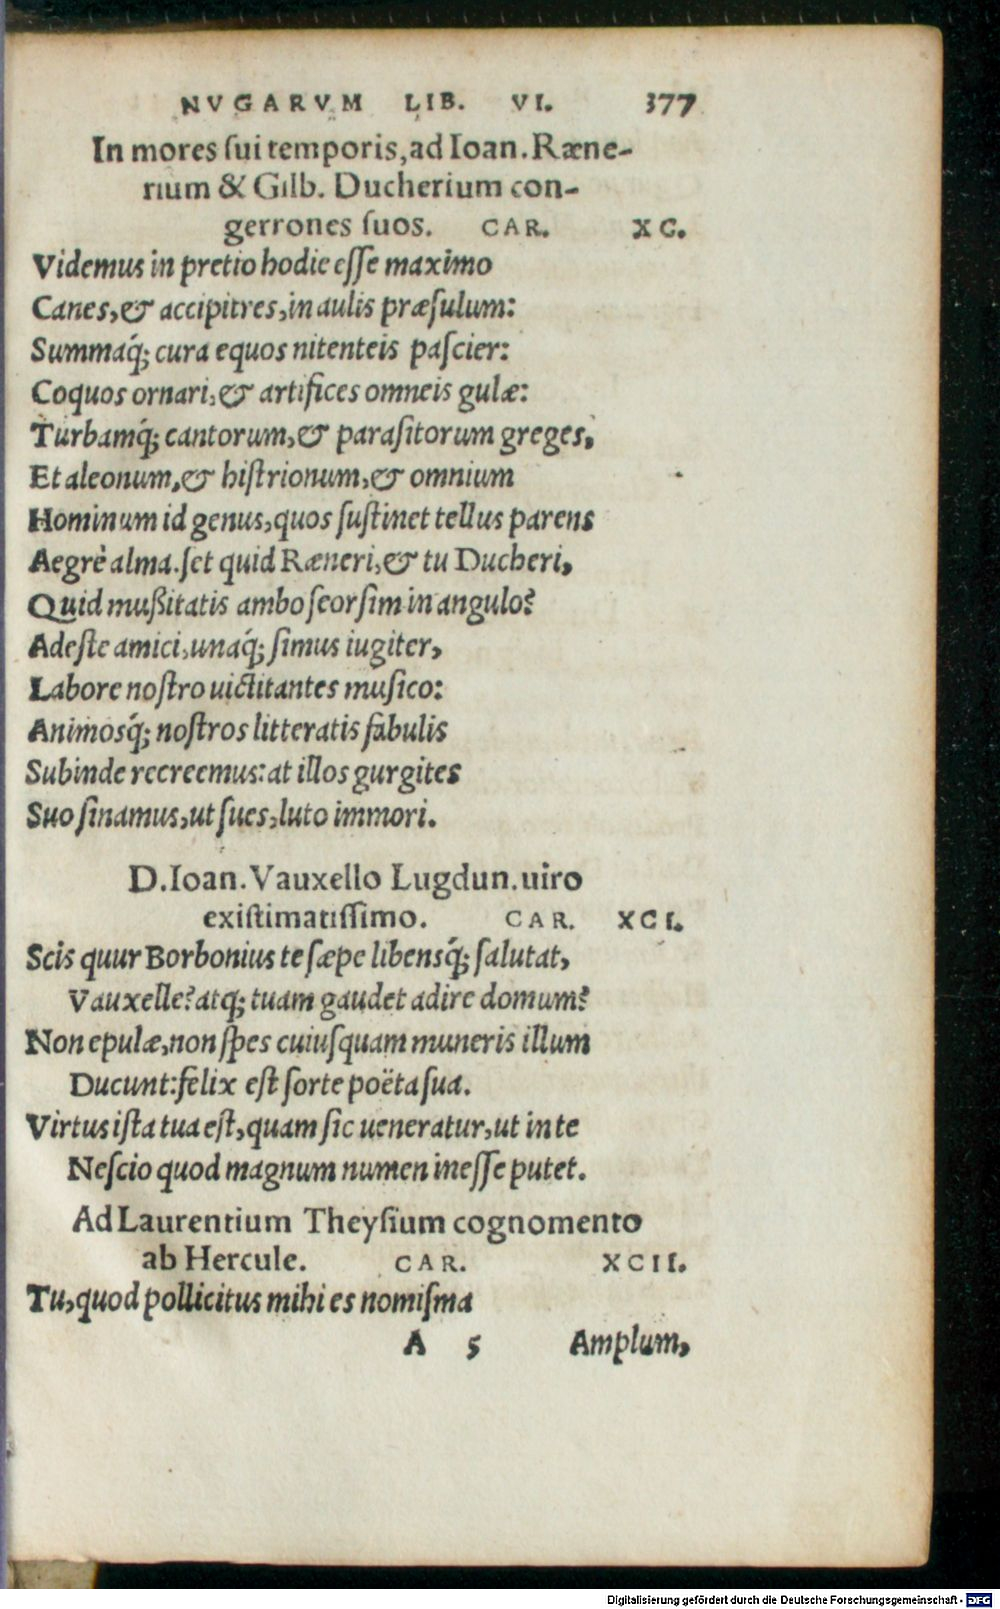 NVGARVM LIB. VI. 377
In mores ſui temporis, ad Ioan. Ræne-
rium & Gilb. Ducherium con-
gerrones ſuos. CAR. XC.
Videmus in pretio hodie eſſe maximo
Canes, & accipitres, in aulis præſulum:
Summaq́; cura equos nitenteis paſcier:
Coquos ornari, & artifices omneis gulæ:
Turbamq́; cantorum, & paraſitorum greges,
Et aleonum, & hiſtrionum, & omnium
Hominum id genus, quos ſuſtinet tellus parens
Aegrè alma. ſet quid Ræneri, & tu Ducheri,
Quid mußitatis ambo ſeorſim in angulo?
Adeſte amici, unaq́; ſimus iugiter,
Labore noſtro uictitantes muſico:
Animosq́; noſtros litteratis fabulis
Subinde recreemus: at illos gurgites
Suo ſinamus, ut ſues, luto immori.
D. Ioan. Vauxello Lugdun. uiro
exiſtimatiſſimo. CAR. XCI.
Scis quur Borbonius te ſæpe libensq́; ſalutat,
Vauxelle? atq; tuam gaudet adire domum?
Non epulæ, non ſpes cuiuſquam muneris illum
Ducunt: felix eſt ſorte poëta ſua.
Virtus iſta tua eſt, quam ſic ueneratur, ut in te
Neſcio quod magnum numen ineſſe putet.
Ad Laurentium Theyſium cognomento
ab Hercule. CAR. XCII.
Tu, quod pollicitus mihi es nomiſma
A 5 Amplum,
Digitalisierung gefördert durch die Deutsche Forschungsgemeinschaft - DFG